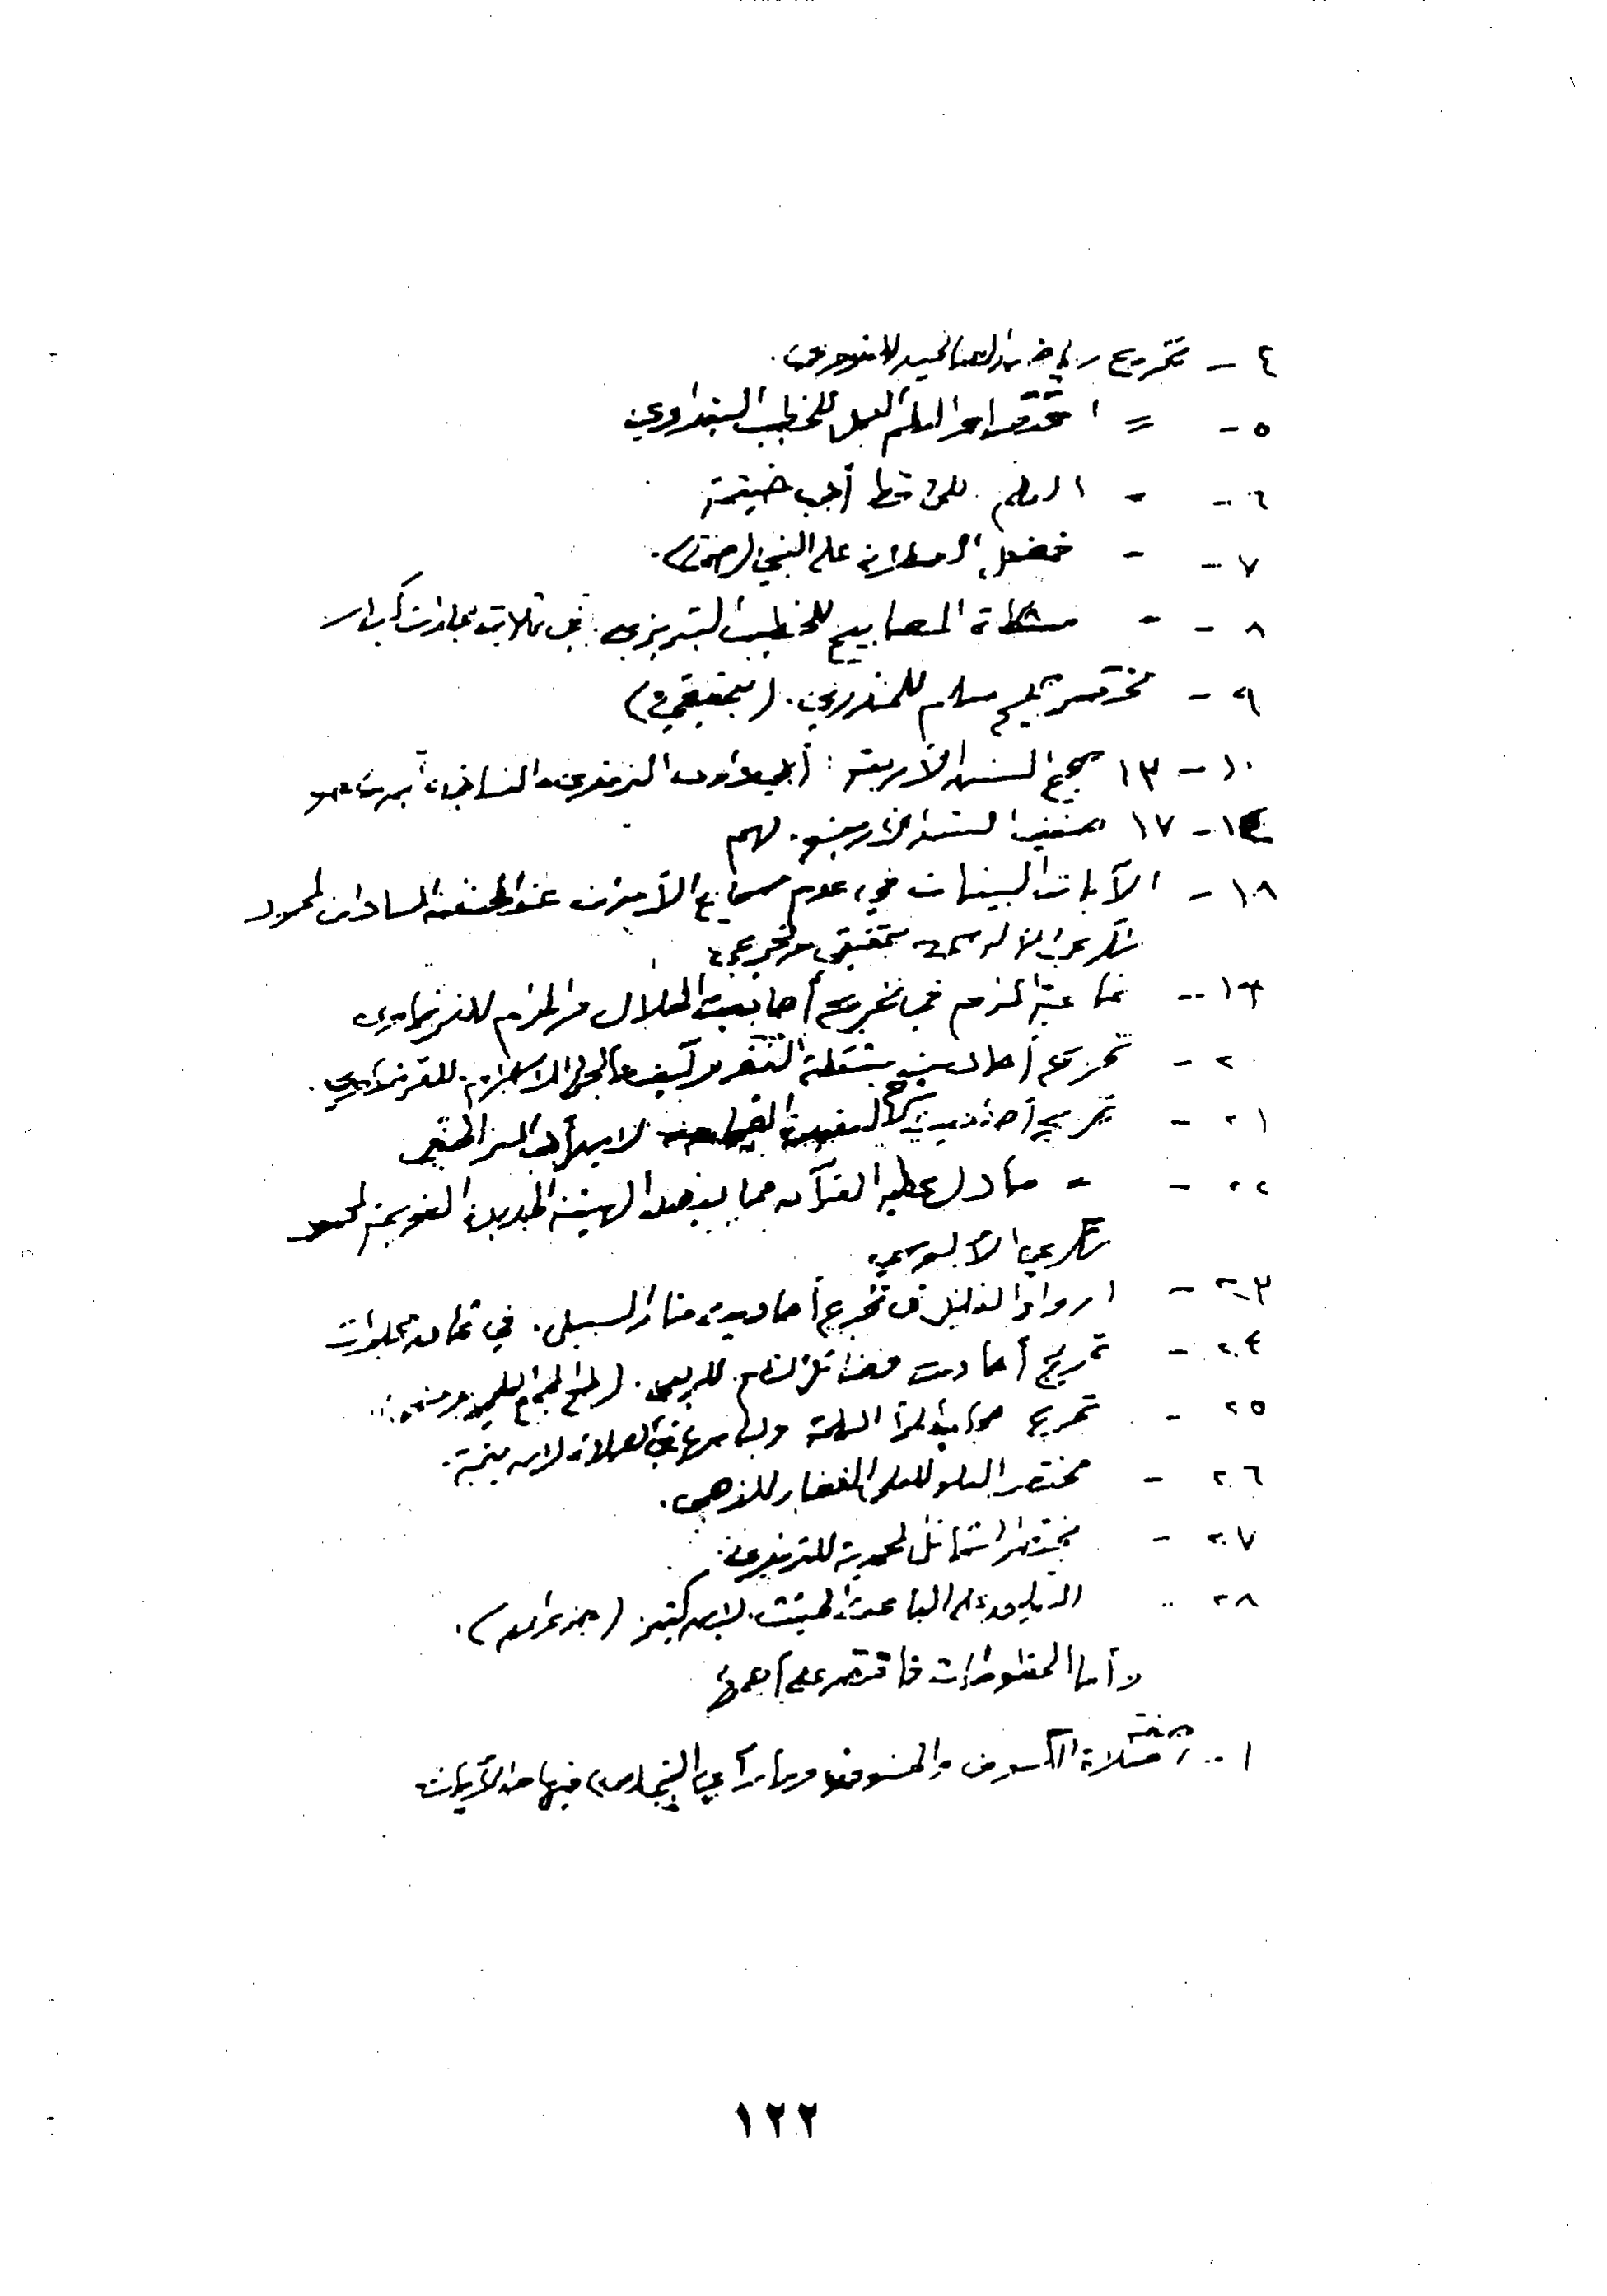 ٤ - تخريج رياض الصالحين للنووي.
٥ - = اقتضاء العلم العمل للخطيب البغدادي
٦ - - العلم للحافظ أبي خيثمة
٧ - - فضل الصلاة على النبي (ص).
٨ - - مشكاة المصابيح للخطيب التبريزي. في ثلاث مجلدات كبار
٩ - مختصر صحيح مسلم للمنذري. (بتحقيقي)
١٠ - ١٣ صحيح السنن الأربعة: أبي داود الترمذي النسائي
١٤ - ١٧ ضعيف السنن الأربعة. لهم
١٨ - الآيات البينات في عدم سماع الأموات عند الحنفية السادات لمحمود
شكري الآلوسي تحقيق وتخريج
١٩ - غاية المرام في تخريج أحاديث الحلال والحرام للقرضاوي
٢٠ - تخريج أحاديث مشكلة الفقر وكيف عالجها الإسلام. للقرضاوي.
٢١ - تخريج أحاديث شرح العقيدة الطحاوية لابن أبي العز الحنفي
٢٢ - - ما دل عليه القرآن مما يعضد الهيئة الجديدة القويمة لمحمود
شكري الآلوسي
٢٣ - ارواء الغليل في تخريج أحاديث منار السبيل. في ثمان مجلدات
٢٤ - تخريج أحاديث فضائل الشام للربعي.
٢٥ - تخريج حجاب المرأة المسلمة ولباسها في الصلاة لابن تيمية.
٢٦ - مختصر العلو للعلي الغفار للذهبي.
٢٧ - مختصر الشمائل المحمدية للترمذي.
٢٨ الباعث الحثيث لابن كثير
وأما المخطوطات فاقتصر على أهمها
١ - صلاة الكسوف والخسوف وما رأى النبي (ص) فيها من الآيات
١٢٢